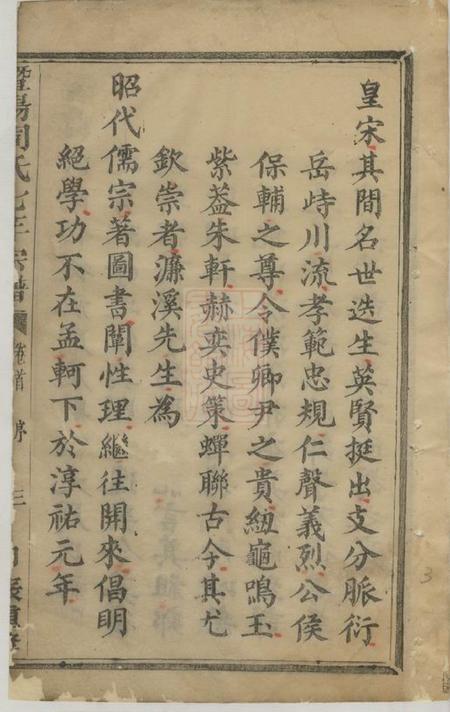 皇宋其間名世迭生英賢挺出支分脈衍
岳峙川流孝範忠規仁聲義烈公侯
保輔之尊令僕卿尹之貴紐龜鳴玉
紫葢朱軒赫奕史策蟬聯古今其尤
欽崇者濂溪先生為
昭代儒宗著圖書闡性理繼往開來倡明
絕學功不在孟軻下於淳祐元年
暨陽周氏宗譜
卷首
序
三
3